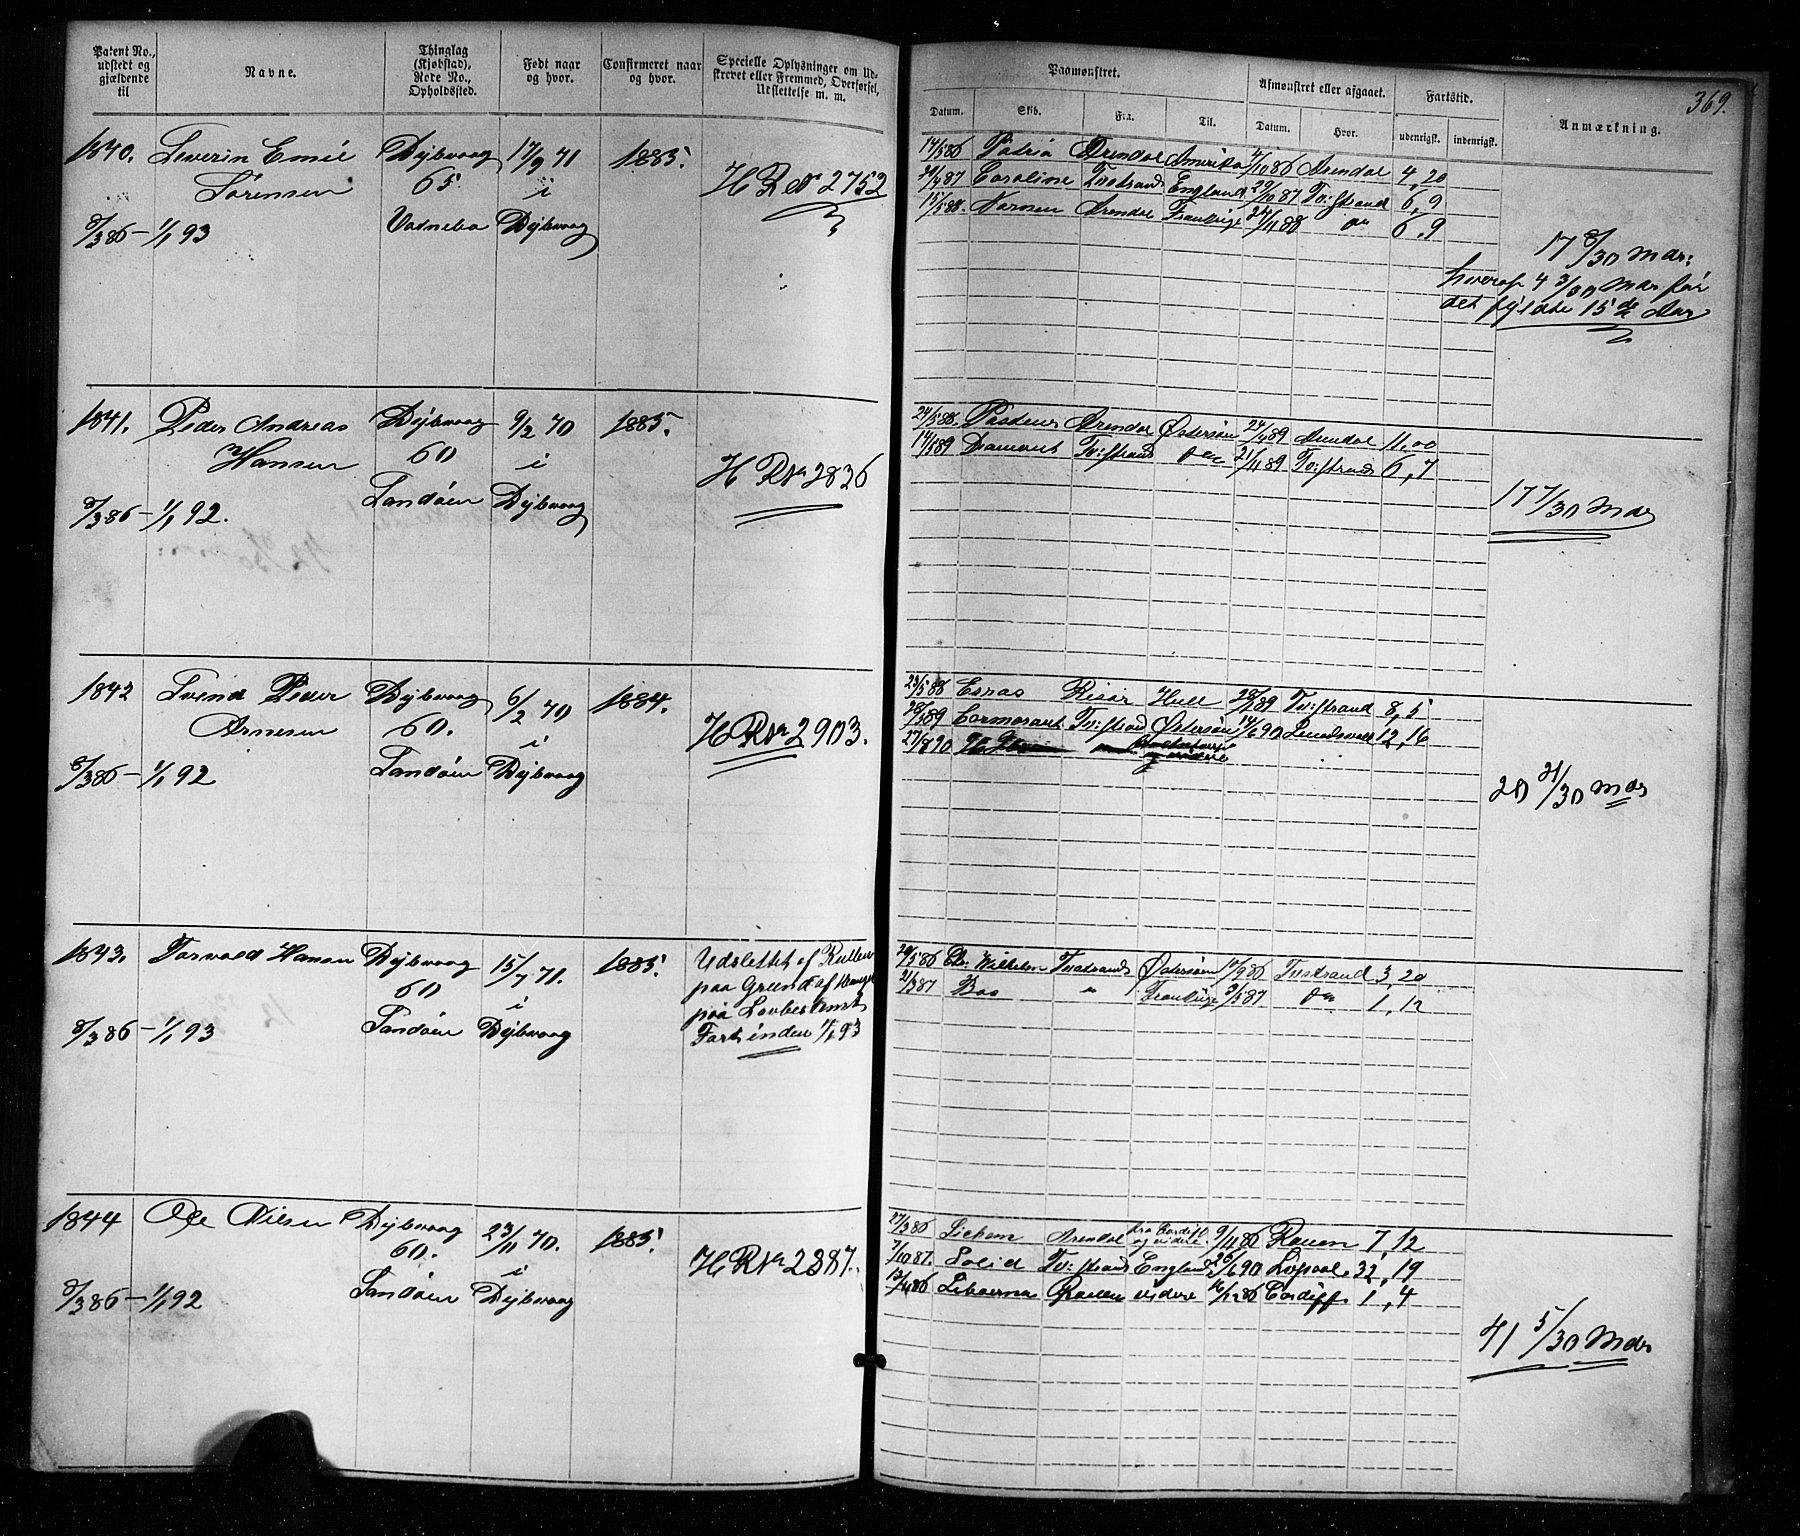 369.
Patent No., udstedt og gjældende til
Navne.
Thinglag (Kjøbstad), Rode No., Opholdssted.
Født naar og hvor.
Confirmeret naar og hvor.
Specielle Oplysninger om Udskrevet eller Fremmed, Overførsel, Udslettelse m. m.
Paamønstret.
Afmønstret eller afgaaet.
Fartstid.
Anmærkning.
Datum. Skib. Fra. Til. Datum. Hvor. udenrigsk. indenrigsk.
1840. Severin Emil Dybvaag 17/9 71 1885.
Sørensen 65. i H R No 2752
8/3 86 - 1/1 93 Vatnebo Dybvaag
14/5 86 Patria Arendal Amerika 4/10 86 Arendal 4, 20
Caroline Tvedestrand England 29/10 87 Tv:strand 6, 9
15/5 88. Arendal Frankrige 24/11 88 do 6, 9
17 8/30 Mdr:
hvoraf 4 3/30 Mdr før
det fyldte 15de Aar
1841. Peder Andreas Dybvaag 9/2 70 1885.
Hansen 60 i H R No 2836
8/3 86 - 1/1 92. Sandøen Dybvaag
24/5 88. Arendal Østersøen 24/4 89 Arendal 11,00
Tv:strand do 21/11 89 Tv:strand 6, 7
17 7/30 Mdr
1842 Svend Peder Dybvaag 6/2 70 1884.
Arnesen 60. i H R No 2903.
8/3 86 - 1/1 92 Sandøen Dybvaag
23/5 88 Esras Risør Hull Tv:strand 8, 5
Cormorant Tv:strand Østersøen 14/6 90 12, 16
27/8 90
20 21/30 Mdr
1843. Torvald Hansen Dybvaag 15/7 71. 1885.
60 i
8/3 86 - 1/1 93 Sandøen Dybvaag
Udslettet af Rullen
paa Grund af Mangel
paa Lovbestemt
Fart inden 1/1 93
20/5 86 Chr. Wilhelm Tvedestrand Østersøen 10/9 86 Tvedestrand 3, 20
21/3 87 Bas " Frankrige 3/5 87 do 1, 12
1844 Ole Nilsen Dybvaag 23/11 70. 1885.
60. i H R No 2887.
8/3 86 - 1/1 92 Sandøen Dybvaag
27/3 86 Sichem Arendal fra Cardiff og videre 9/11 86 Rouen 7, 12
7/10 87. Solid Tv:strand England 26/6 90 L:pool 32, 19
13/11 86 Rouen videre 16/12 86 Cardiff 1, 4
41 5/30 Mdr